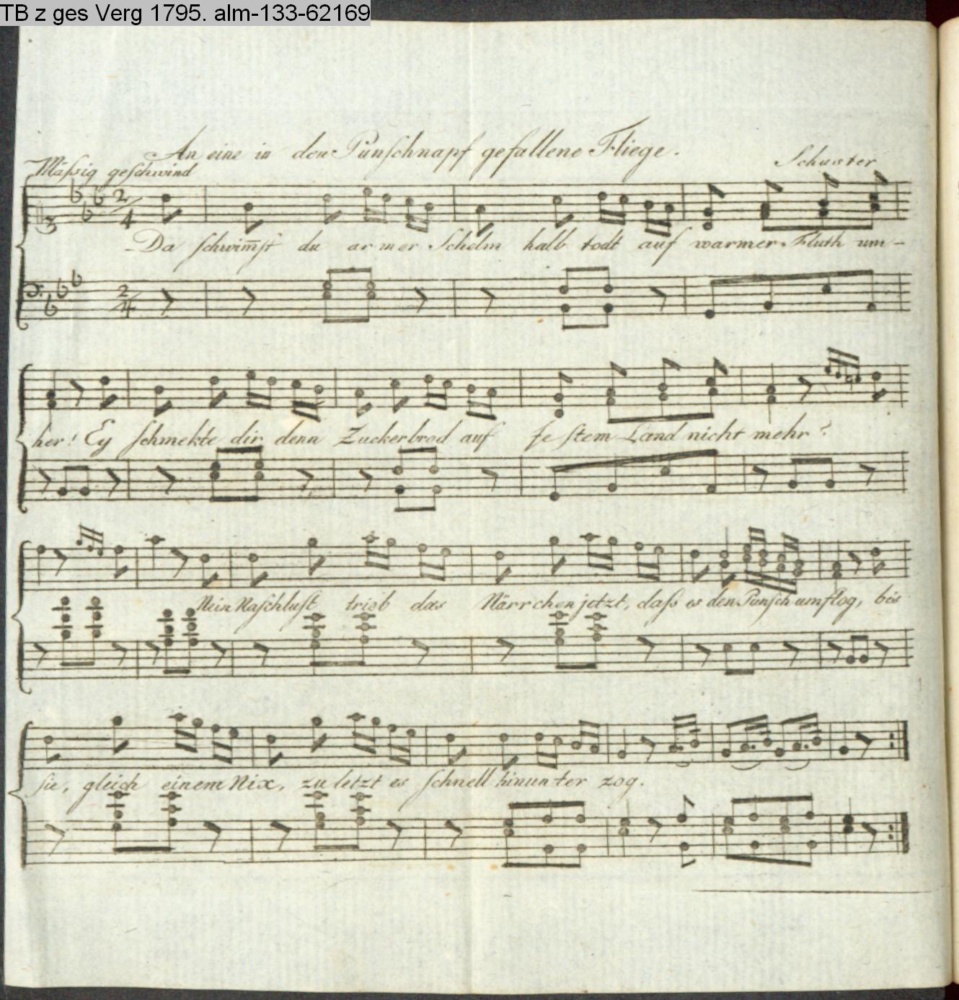 TB z ges Verg 1795. alm-133-62169
An eine in den Punschnapf gefallene Fliege.
Mäßig geschwind
Schuster
2/4
Da schwim̄st du armer Schelm halb todt auf warmer Fluth um-
2/4
her! Ey schmekte dir denn Zuckerbrod auf festem Land nicht mehr?
Nein Naschlust trieb das Närrchen jetzt, daß es den Punsch umflog, bis
sie, gleich einem Nix, zuletzt es schnell hinunter zog.